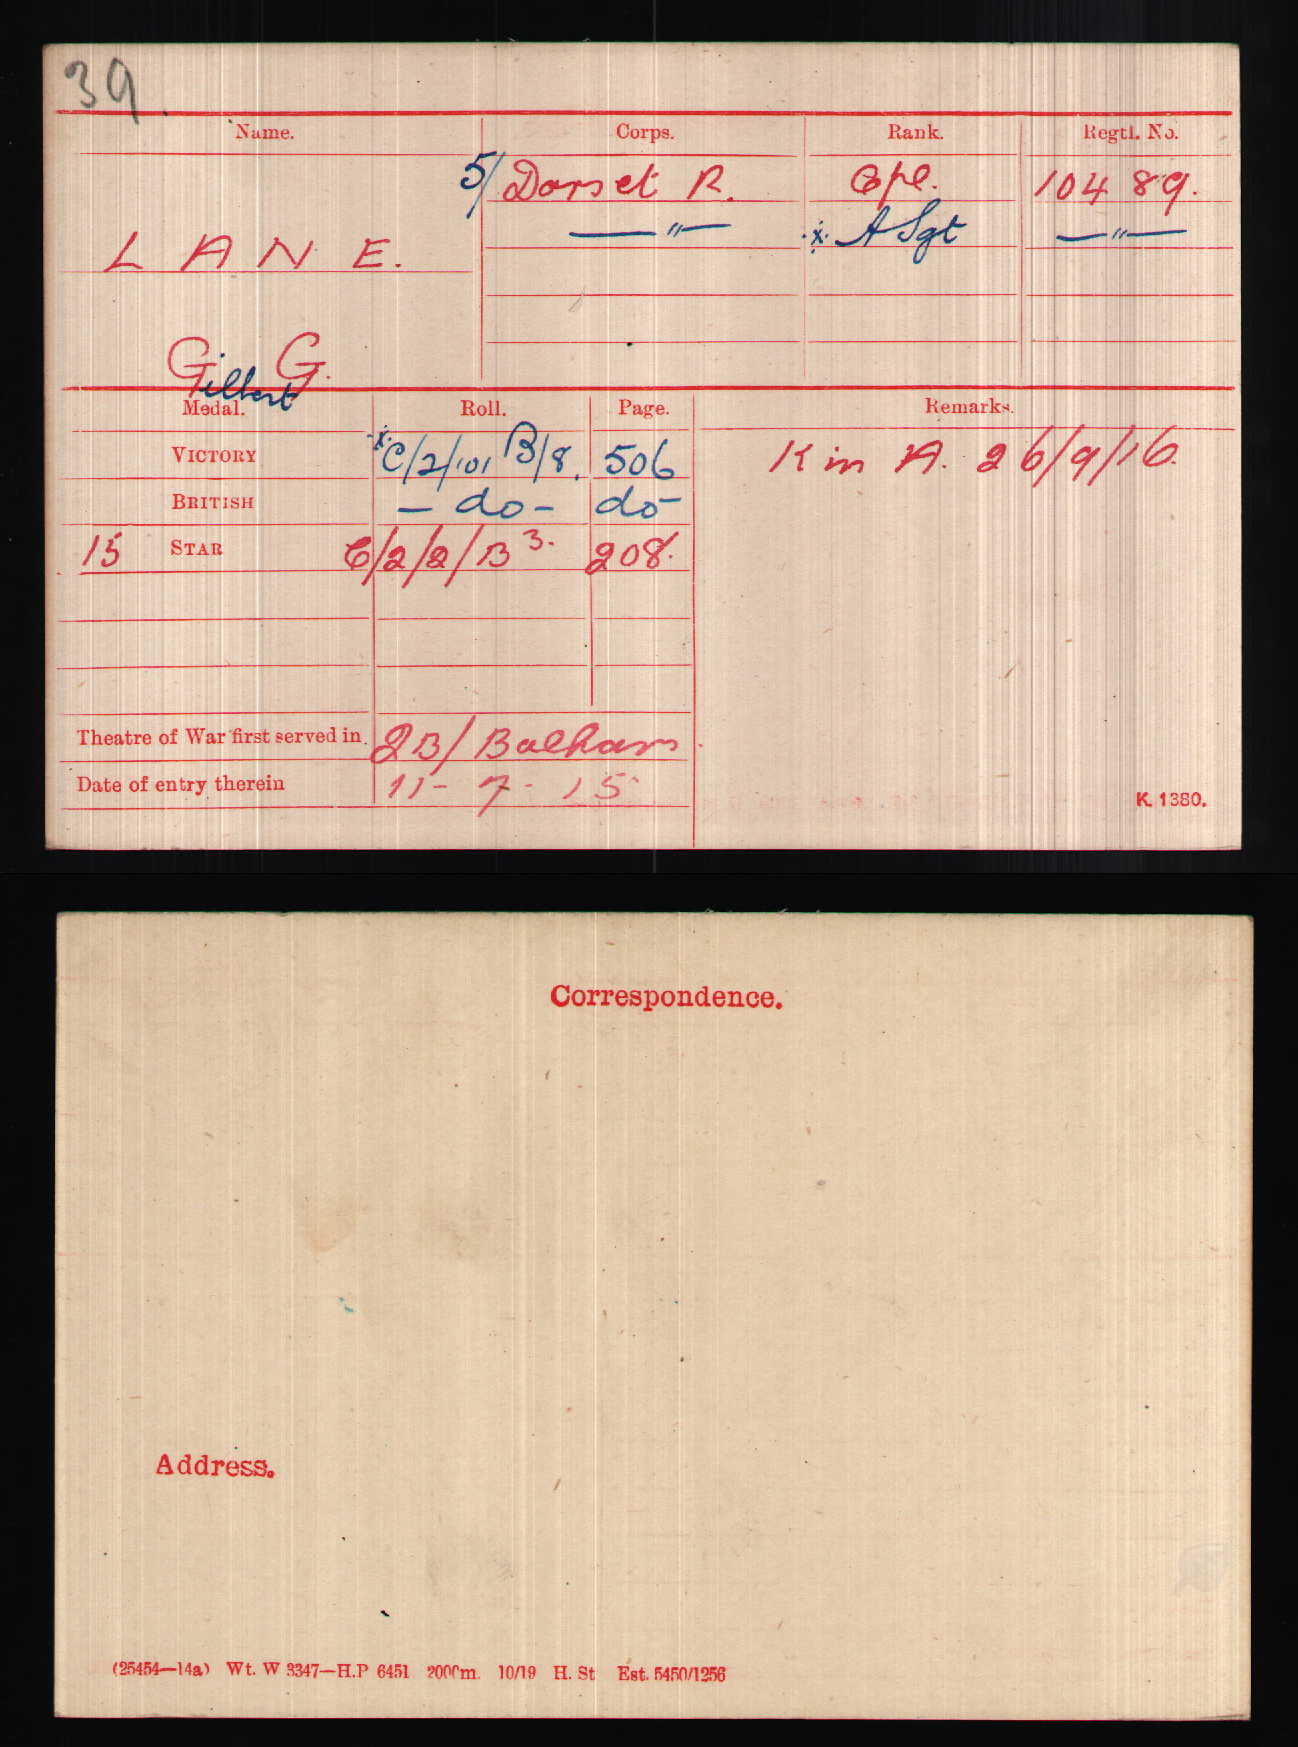 39.
Name. Corps. Rank. Regtl. No.
5/ Dorset R. Cpl. 10489.
—"— ·x· A Sgt —"—
LANE.
G. G.
ilbert
Medal. Roll. Page. Remarks.
VICTORY ·x· C/2/101 B/8. 506 K in A. 26/9/16.
BRITISH — do — do —
15 STAR C/2/2/B3. 208.
Theatre of War first served in. 2B/ Balkans
Date of entry therein 11-7-15
K. 1380.
Correspondence.
Address.
(25454—14a) Wt. W 3347—H.P 6451 2000m. 10/19 H. St Est. 5450/1256